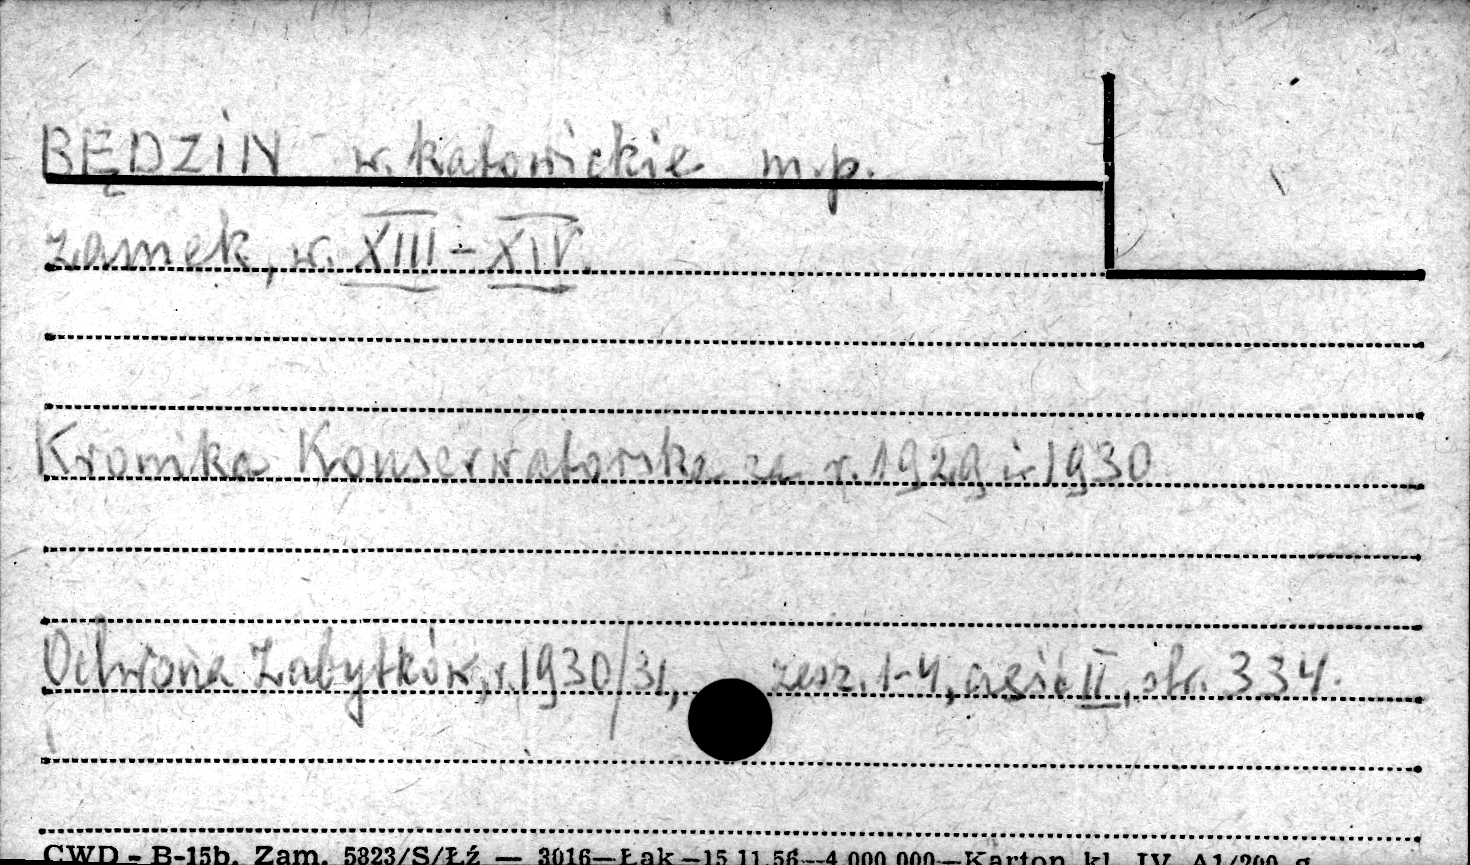 BĘDZIN w. katowickie m.p.
zamek, w. XIII-XIV.
Kronika Konserwatorska za r. 1929 i 1930
Ochrona Zabytków, r. 1930/31, zesz. 1-4, część II, str. 334.
CWD - B-15b. Zam. 5823/S/Łź — 3016—Łak—15.11.56—4.000.000—Karton kl. IV. A1/200 g